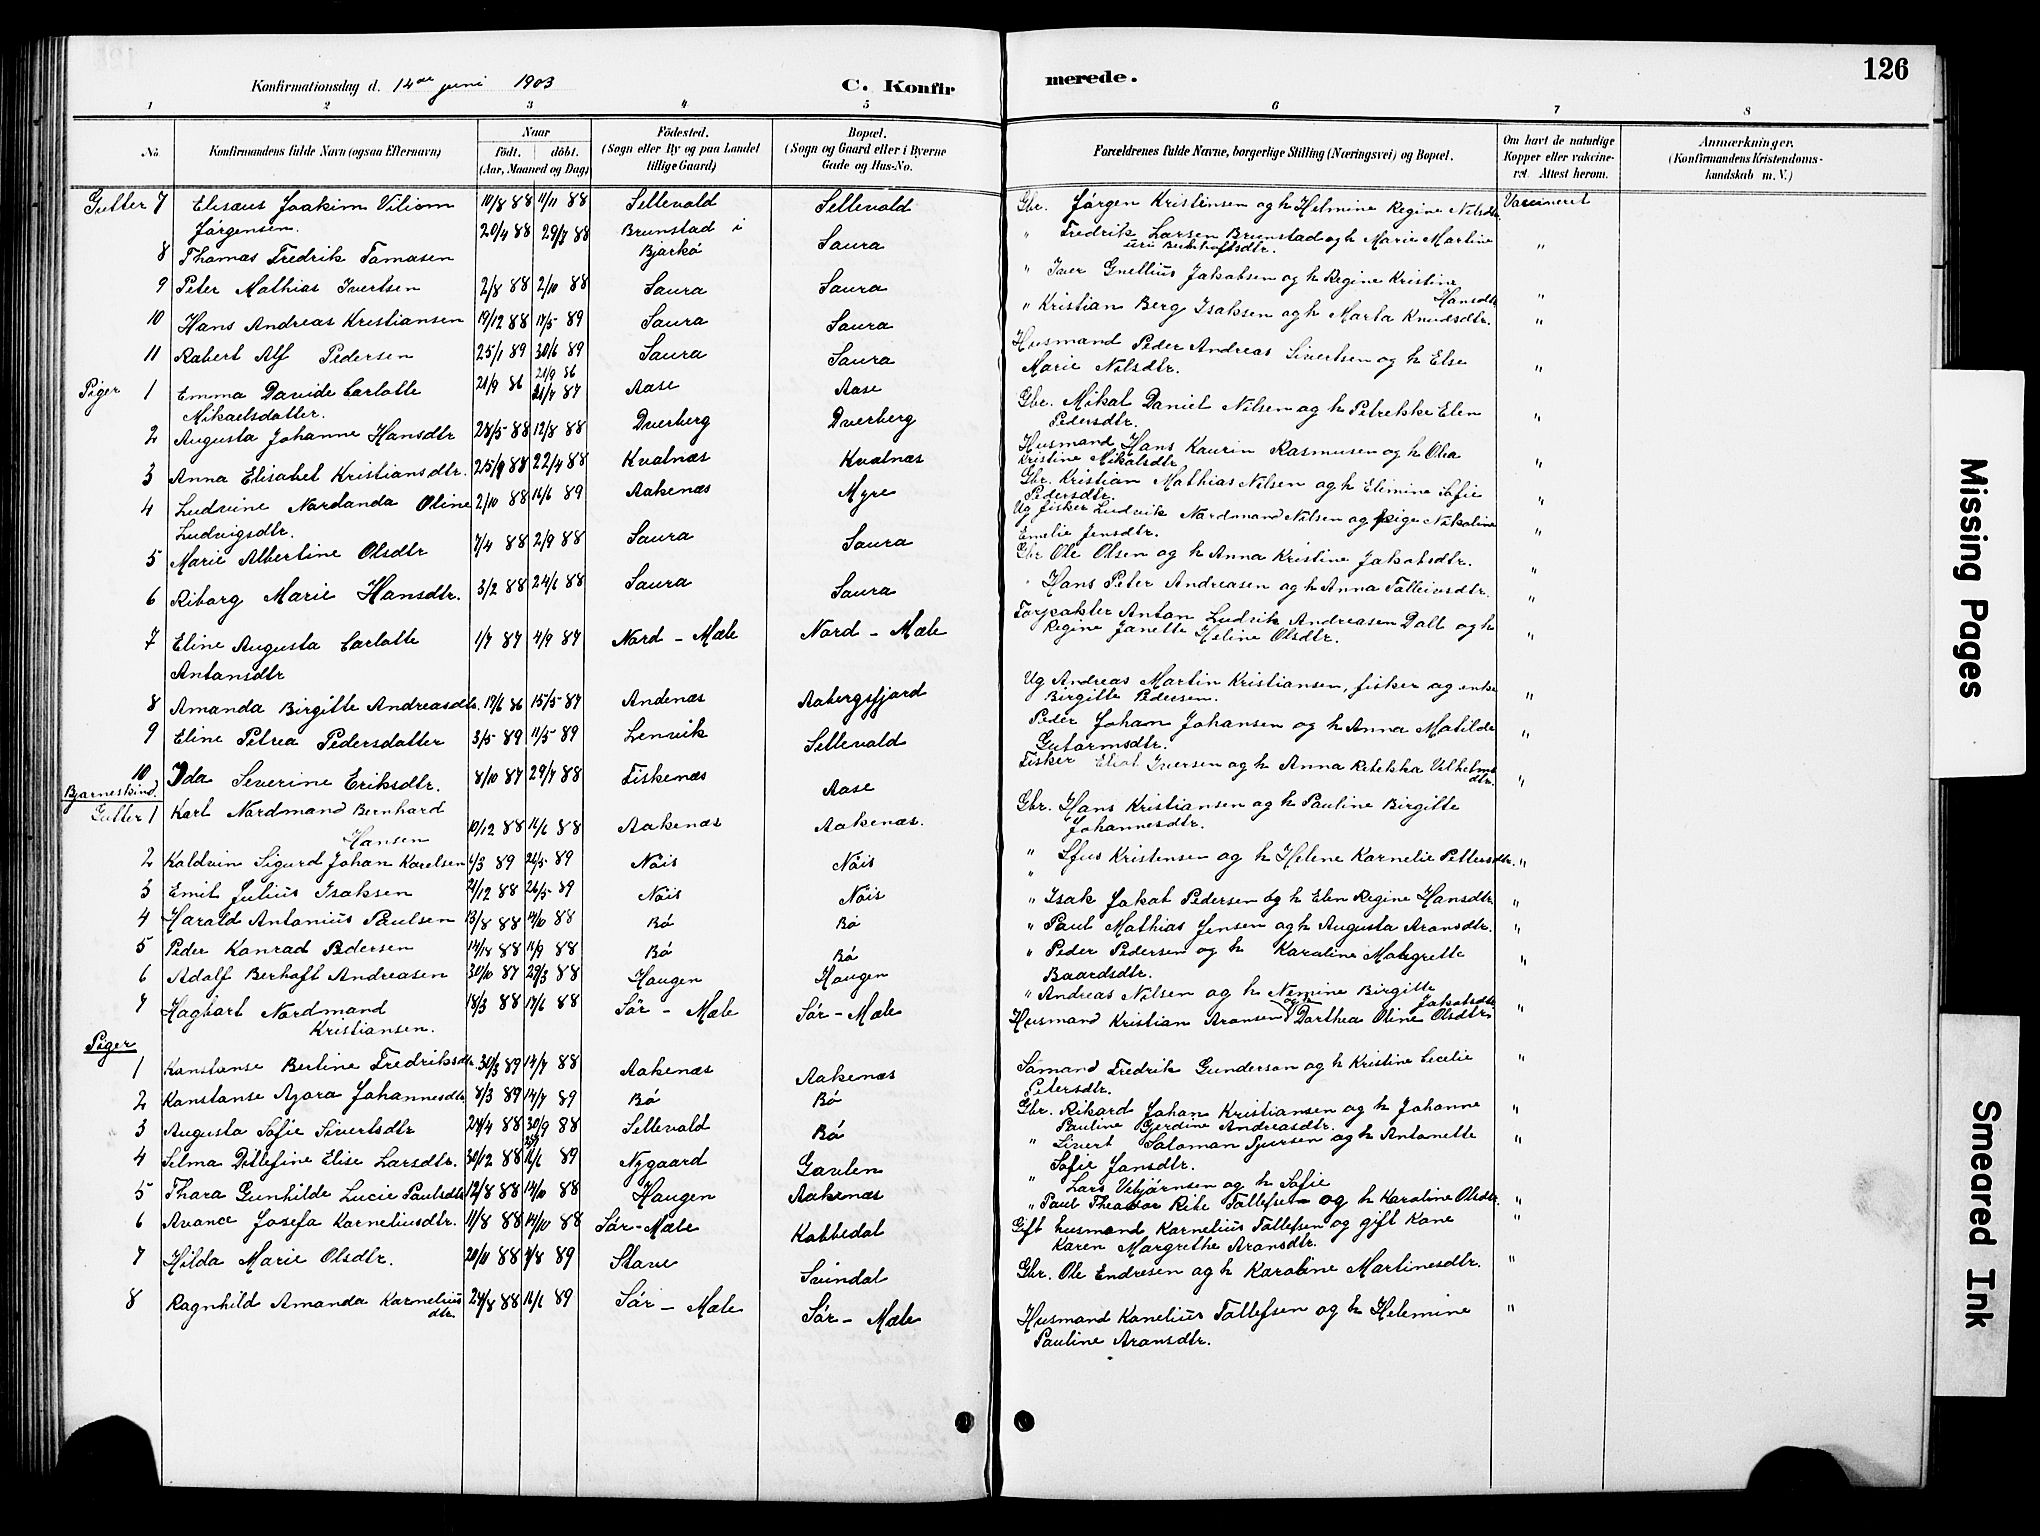 126
Konfirmationsdag d. 14de juni 1903
C. Konfirmerede.
1 2 3 4 5 6 7 8
No.
Konfirmandens fulde Navn (ogsaa Efternavn)
Naar
født. døbt.
(Aar, Maaned og Dag)
Fødested.
(Sogn eller By og paa Landet
tillige Gaard)
Bopæl.
(Sogn og Gaard eller i Byerne
Gade og Hus-No.
Forældrenes fulde Navne, borgerlige Stilling (Næringsvei) og Bopæl.
Om havt de naturlige
Kopper eller vakcine-
ret. Attest herom.
Anmærkninger.
(Konfirmandens Kristendoms-
kundskab m. V.)
Gutter 7 Elisæus Joakim Viliam Jørgensen. 10/8 88 11/11 88 Sellevold Sellevold Gbr. Jørgen Kristensen og h Helmine Regine Nilsdtr Vaccineret
8 Thomas Fredrik Tomasen 20/4 88 29/7 88 Brunstad i Bjarkø Saura " Fredrik Larsen Brunstad og h Marie Martine "
9 Peter Mathias Ivertsen 2/8 88 2/10 88 Saura Saura " Iver Gnellius Jakobsen og h Regine Kristine Hansdtr "
10 Hans Andreas Kristiansen 19/12 88 17/5 89 Saura Saura " Kristian Berg Isaksen og h Marta Knudsdtr. "
11 Robert Alf Pedersen 25/1 89 30/6 89 Saura Saura Husmand Peder Andreas Sivertsen og h Else Marie Nilsdtr. "
Piger 1 Emma Davide Carlotte Mikaelsdatter. 21/9 86 21/7 87 Aase Aase Gbr. Mikal Daniel Nilsen og h Petrikke Elen Pedersdtr. "
2 Augusta Johanne Hansdtr 28/5 88 12/8 88 Dverberg Dverberg Husmand Hans Kaurin Rasmusen og h Olia Kristine Mikalsdtr "
3 Anna Elisabet Kristiansdtr. 22/4 88 Kvalnæs Kvalnæs Gbr. Kristian Mathias Nilsen og h Elimine Sofie Pedersdtr. "
4 Ludvine Nordanda Oline Ludvigsdtr. 2/10 88 16/6 89 Aakenæs Myre Ug fisker Ludvik Nordmand Nilsen og pige Nikoline Emelie Jensdtr. "
5 Marie Albertine Olsdtr 7/4 88 2/9 88 Saura Saura Gbr Ole Olsen og h Anna Kristine Jakobsdtr. "
6 Riborg Marie Hansdtr. 3/2 88 24/6 88 Saura Saura " Hans Peter Andreasen og h Anna Tolleivsdtr. "
7 Eline Augusta Carlotte Antonsdtr 1/7 87 4/9 87 Nord - Mæle Nord - Mæle Forpakter Anton Ludvik Andreasen Dall og h Regine Janette Heline Olsdtr. "
8 Amanda Birgitte Andreasdtr. 17/6 86 15/5 87 Andenæs Aabergsfjord Ug Andreas Martin Kristiansen, fisker og enke Birgitte Pedersen. "
9 Eline Petrea Pedersdatter 3/5 89 11/5 89 Lenvik Sellevold Peder Johan Johansen og h Anna Matilde Gutormsdtr. "
10 Ida Severine Eriksdtr. 8/10 87 29/7 88 Fiskenæs Aase Fisker Iversen og h Anna Rebekka Vilhelmsdtr. "
Bjørneskind.
Gutter 1 Karl Nordmand Bernhard Hansen 10/12 88 88 Aakenæs Aakenæs. Gbr. Hans Kristiansen og h Pauline Birgitte Johannesdtr.
2 Kaldvin Sigurd Johan Karelsen 4/3 89 26/5 89 Nøis Nøis " Kristensen og h Helene Karnelie Pettersdtr. "
3 Emil Julius Isaksen 21/12 88 26/5 89 Nøis Nøis " Isak Jakob Pedersen og h Elen Regine Hansdtr. "
4 Harald Antonius Paulsen 13/8 88 14/10 88 Bø Bø " Paul Mathias Jensen og h Augusta Aronsdtr. "
5 Peder Konrad Pedersen 88 11/9 88 Bø Bø " Peder Pedersen og h Karoline Margrette Baardsdtr. "
6 Adolf Berhoft Andreasen 30/10 87 29/3 88 Haugen Haugen " Andreas Nilsen og h Nemine Birgitte Jakobsdtr
7 Hagbart Nordmand Kristiansen. 18/3 88 17/6 88 Sør - Mæle Sør - Mæle Husmand Kristian Aronsen og h Dorthea Oline Olsdtr. "
Piger
1 Konstanse Berline Fredriksdtr. 30/3 89 14/7 88 Aakenæs Aakenæs Sømand Fredrik Gunderson og h Kristine Cecelie Petersdtr. "
2 Konstanse Agora Johannesdtr 8/3 89 14/7 89 Bø Bø Gbr. Rikard Johan Kristiansen og h Johanne Pauline Gjerdine Andreasdtr. "
3 Augusta Sofie Sivertsdtr 24/4 88 30/9 88 Sellevold Bø " Sivert Salomon Sjursen og h Antonette Sofie Jonsdtr. "
4 Selma Ditlefine Elise Larsdtr. 30/12 88 16/6 89 Nygaard Gavlen " Lars Vebjørnsen og h Sofie
5 Thora Gunhilde Lucie Paulsdtr 12/8 88 14/10 88 Haugen Aakenæs " Paul Theodor Rite Tollefsen og h Karoline Olsdtr. "
6 Avance Josefa Karneliusdtr. 11/8 88 14/10 88 Sør-Mæle Kobbedal Gift husmand Karnelius Tollefsen og gift kone Karen Margrethe Aronsdtr. "
7 Hilda Marie Olsdtr. 20/11 88 4/8 89 Stave Saundal Gbr. Ole Endresen og h Karoline Martinesdtr. "
8 Ragnhild Amanda Karneliusdtr. 24/8 88 16/6 89 Sør - Mæle Sør - Mæle Husmand Kanelius Tollefsen og h Helemine Pauline Aronsdtr. "
Missing Pages
Smeared Ink